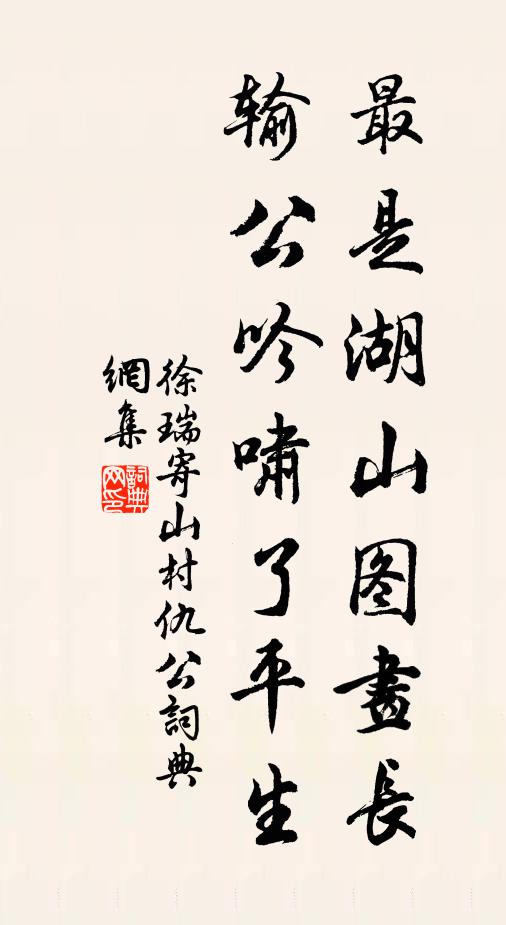 最是湖山图畫長
输公吟嘯了平生
徐瑞寄山村仇公詞典
網集
詞典
网印